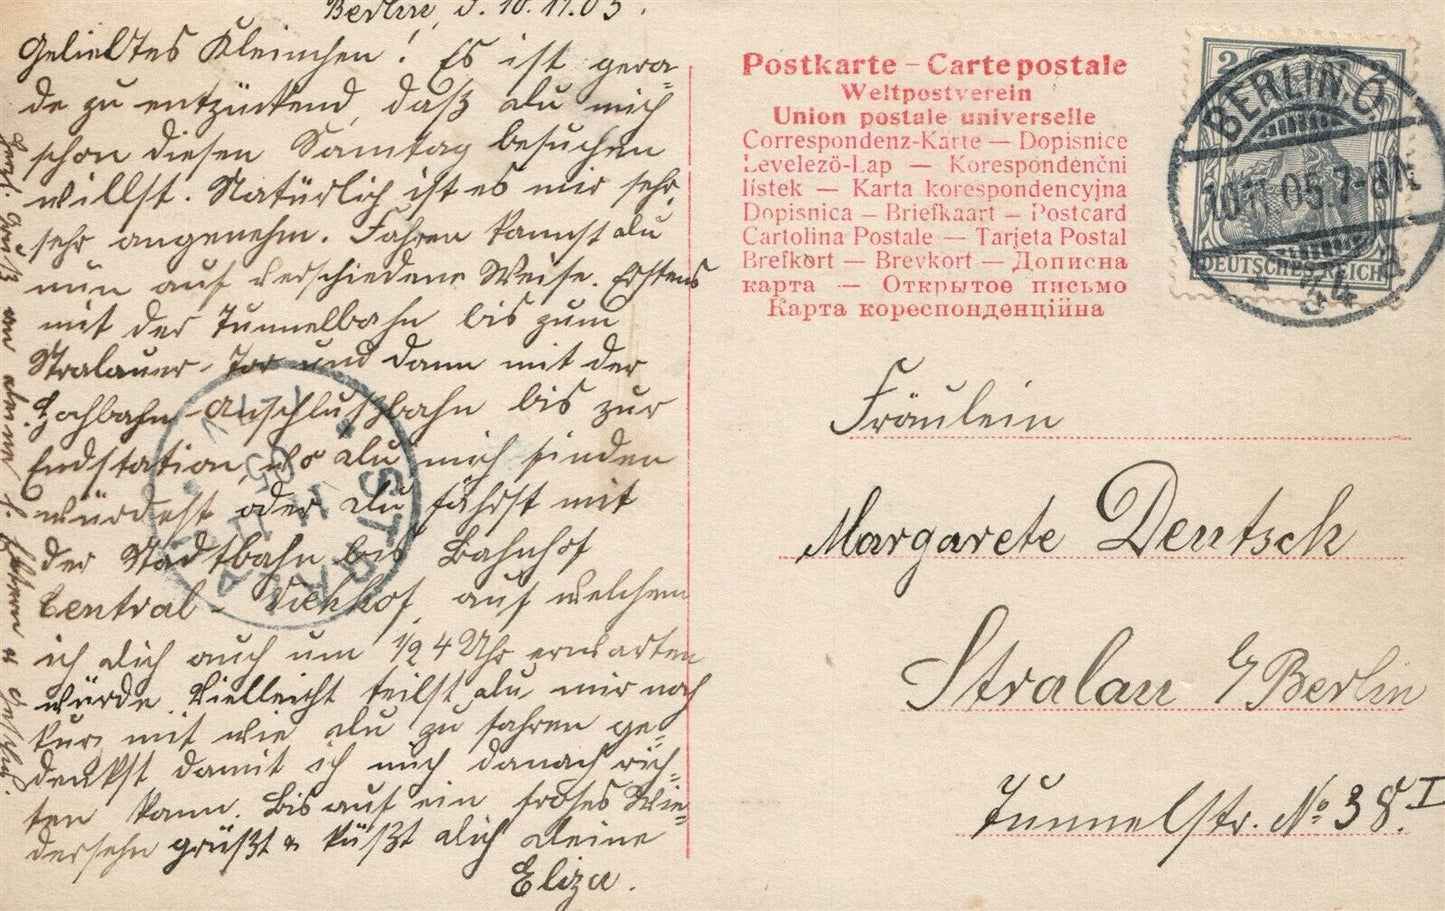 Berlin, d. 10.11.05.
Geliebtes Kleinchen! Es ist gera-
de zu entzückend, daß du mich
schon diesen Samtag besuchen
willst. Natürlich ist es mir sehr,
sehr angenehm. Fahren kannst du
nun auf verschiedene Weise. Erstens
mit der Tunnelbahn bis zum
Stralauer-Tor und dann mit der
Hochbahn-Anschlußbahn bis zur
Endstation, wo du mich finden
würdest oder du fährst mit
der Stadtbahn bis Bahnhof
Central-Viehhof, auf welchem
ich dich auch um 1/2 4 Uhr erwarten
würde. Vielleicht teilst du mir noch
kurz mit wie du zu fahren ge-
denkst damit ich mich danach rich-
ten kann. Bis auf ein frohes Wie-
dersehn grüßt & küßt dich deine
Eliza.
Herzl. Gruß an deine l. Eltern &
Postkarte – Carte postale
Weltpostverein
Union postale universelle
Correspondenz-Karte — Dopisnice
Levelező-Lap — Korespondenční
lístek — Karta korespondencyjna
Dopisnica — Briefkaart — Postcard
Cartolina Postale — Tarjeta Postal
Brefkort — Brevkort — Дописна
карта — Открытое письмо
Карта кореспонденційина
2 2
DEUTSCHES REICH
BERLIN.O.
10.11.05.7-8N.
* 34 a
STRALAU
11
05
Fräulein
Margarete Deutsch
Stralau b/Berlin
Tunnelstr. No 38. I